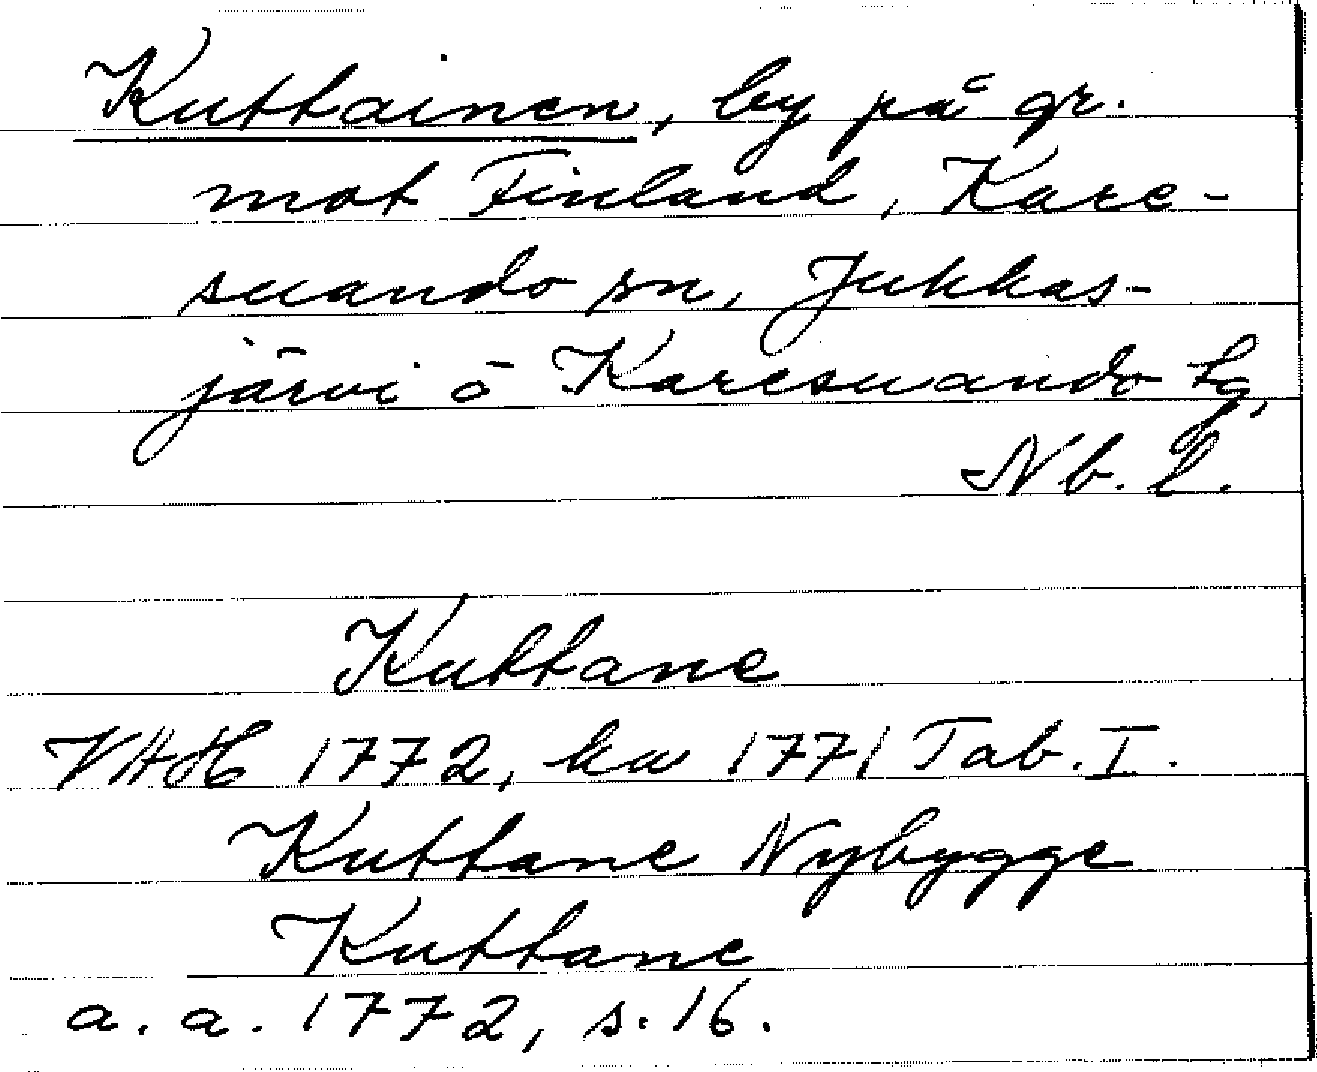 Kuttainen, by på gr.
mot Finland, Kare-
suando sn, Jukkas-
järvi o Karesuando tg,
Nb. l.
Kuttane
VAH 1772, ka 1771 Tab. I.
Kuttane Nybygge
Kuttane
a. a. 1772, s. 16.